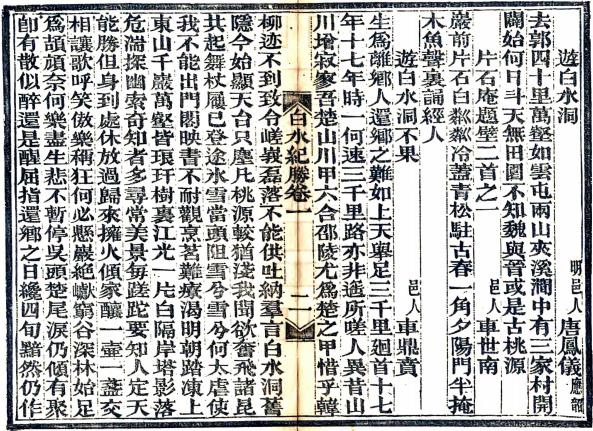 遊白水洞　明邑人　唐鳳儀　應韶
去郭四十里萬壑如雲屯兩山夾溪澗中有三家村開
闢始何日斗天無田園不知魏與晉或是古桃源
片石庵題壁二首之一　邑人　車世南
巖前片石白粼粼冷蓋青松駐古春一角夕陽門半掩
木魚聲裏誦經人
遊白水洞不果　邑人　車鼎賁
生爲離鄉人還鄉之難如上天舉足三千里迴首十七
年十七年時一何速三千里路亦非遙所嗟人異昔山
川增寂寥吾楚山川甲六合邵陵尤爲楚之甲惜乎韓
白水紀勝卷一　二
柳迹不到致令嵯峩磊落不能供吐納羣言白水洞舊
隱今始顯天台只塵凡桃源較猶淺我聞欲奮飛諸昆
共起舞杖屨已登途氷雪當頭阻雪兮雪兮何太虐使
我不能出門閱映書不耐觀烹茗難療渴明朝踏凍上
東山千巖萬壑皆琅玕樹裏江光一片白隔岸塔影落
危湍探幽索奇知者多尋常美景每蹉跎要知人定天
能勝但身到處休放過歸來擁火傾家釀一壺一盞交
相讓歌呼笑傲樂稱狂何必懸巖絕巘窮谷深林始足
爲頡頏奈何樂盡生悲不暫停吳頭楚尾淚仍傾有聚
卽有散似醉還是醒屈指還鄉之日纔四旬黯然仍作